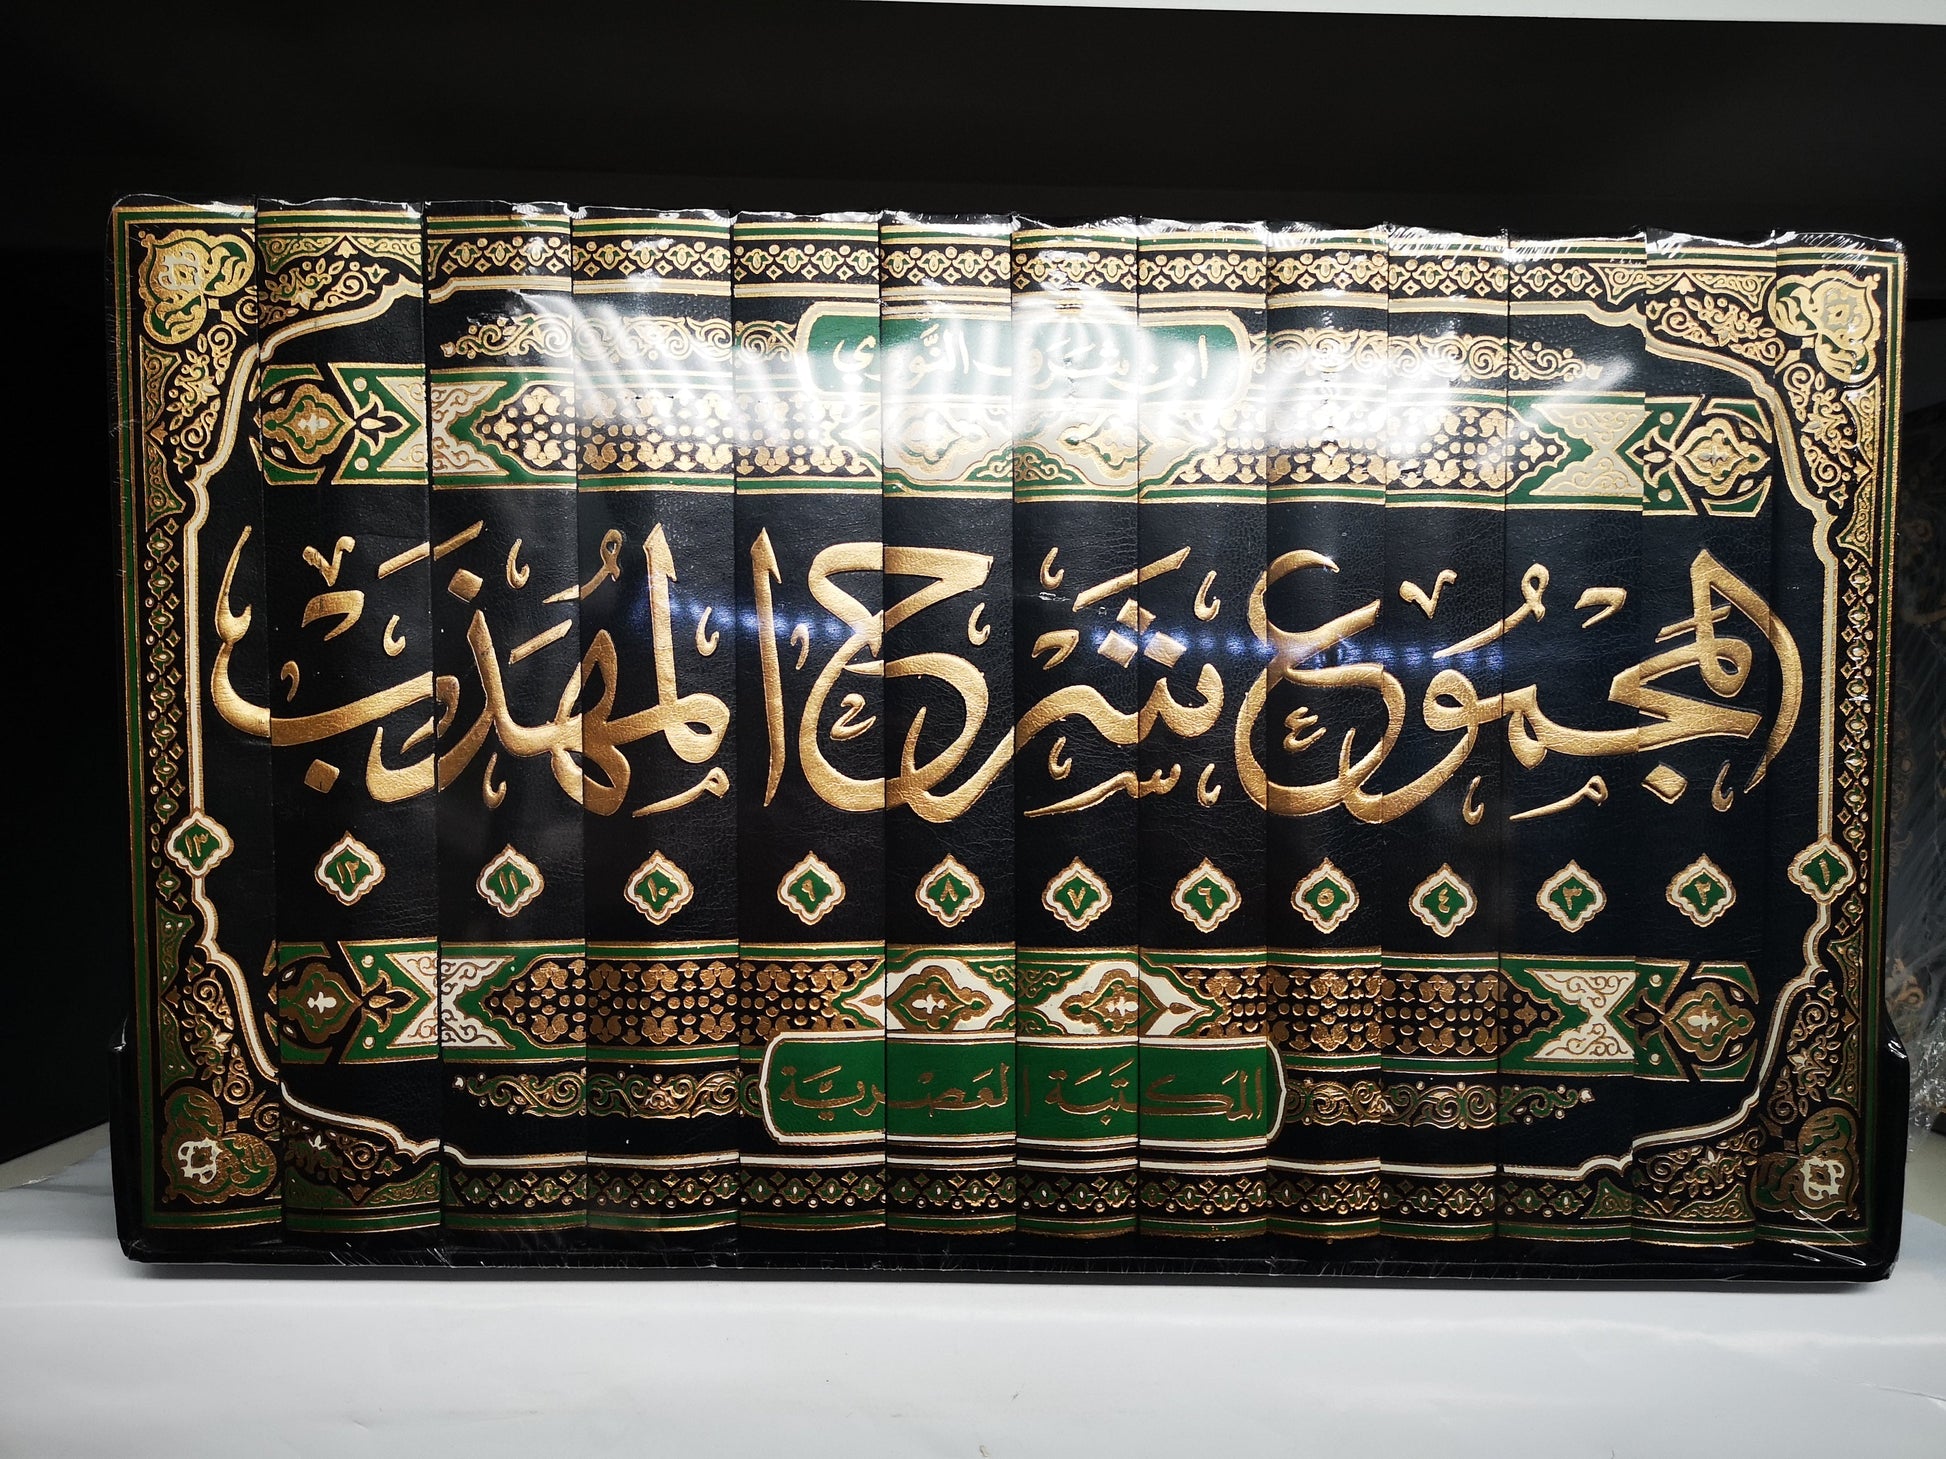 ابن شَرَف النَّوَوي
المجموع شرح المهذب
١ ٢ ٣ ٤ ٥ ٦ ٧ ٨ ٩ ١٠ ١١ ١٢ ١٣
المَكتَبَة العَصْريَّة